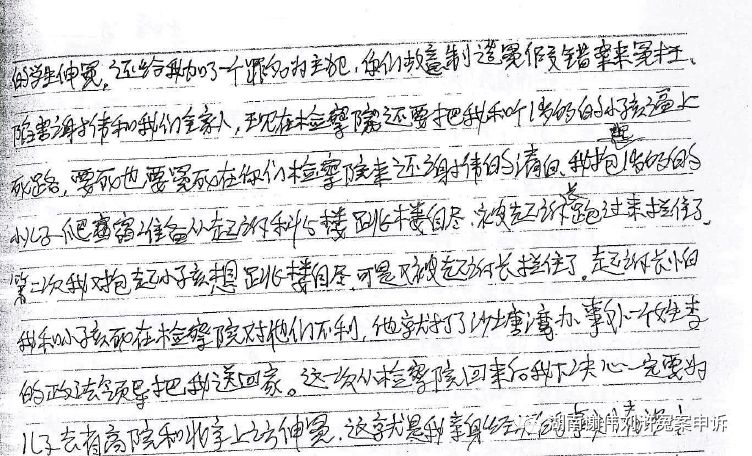 的学生伸冤，还给我加了一个罪名为主犯，你们故意制造冤假错案来冤枉、
陷害谢伟和我们全家人，现在检察院还要把我和个1岁的的小孩逼上
死路，要死也要冤死在你们检察院来还谢伟的清白，我抱起1岁的的
小儿子爬窗准备从起诉科公楼跳楼自尽，被起诉长跑过来拦住了，
第二次我又抱起小孩想跳楼自尽，可是又被起诉长拦住了，起诉长怕
我和小孩死在检察院对他们不利，他就打了沙土唐湾办事处一个姓李
的政法领导把我送回家。这一次从检察院回来后我下决心一定要为
儿子去省高院和北京上访伸冤，这就是我亲身经
湖南谢伟刘许冤案申诉